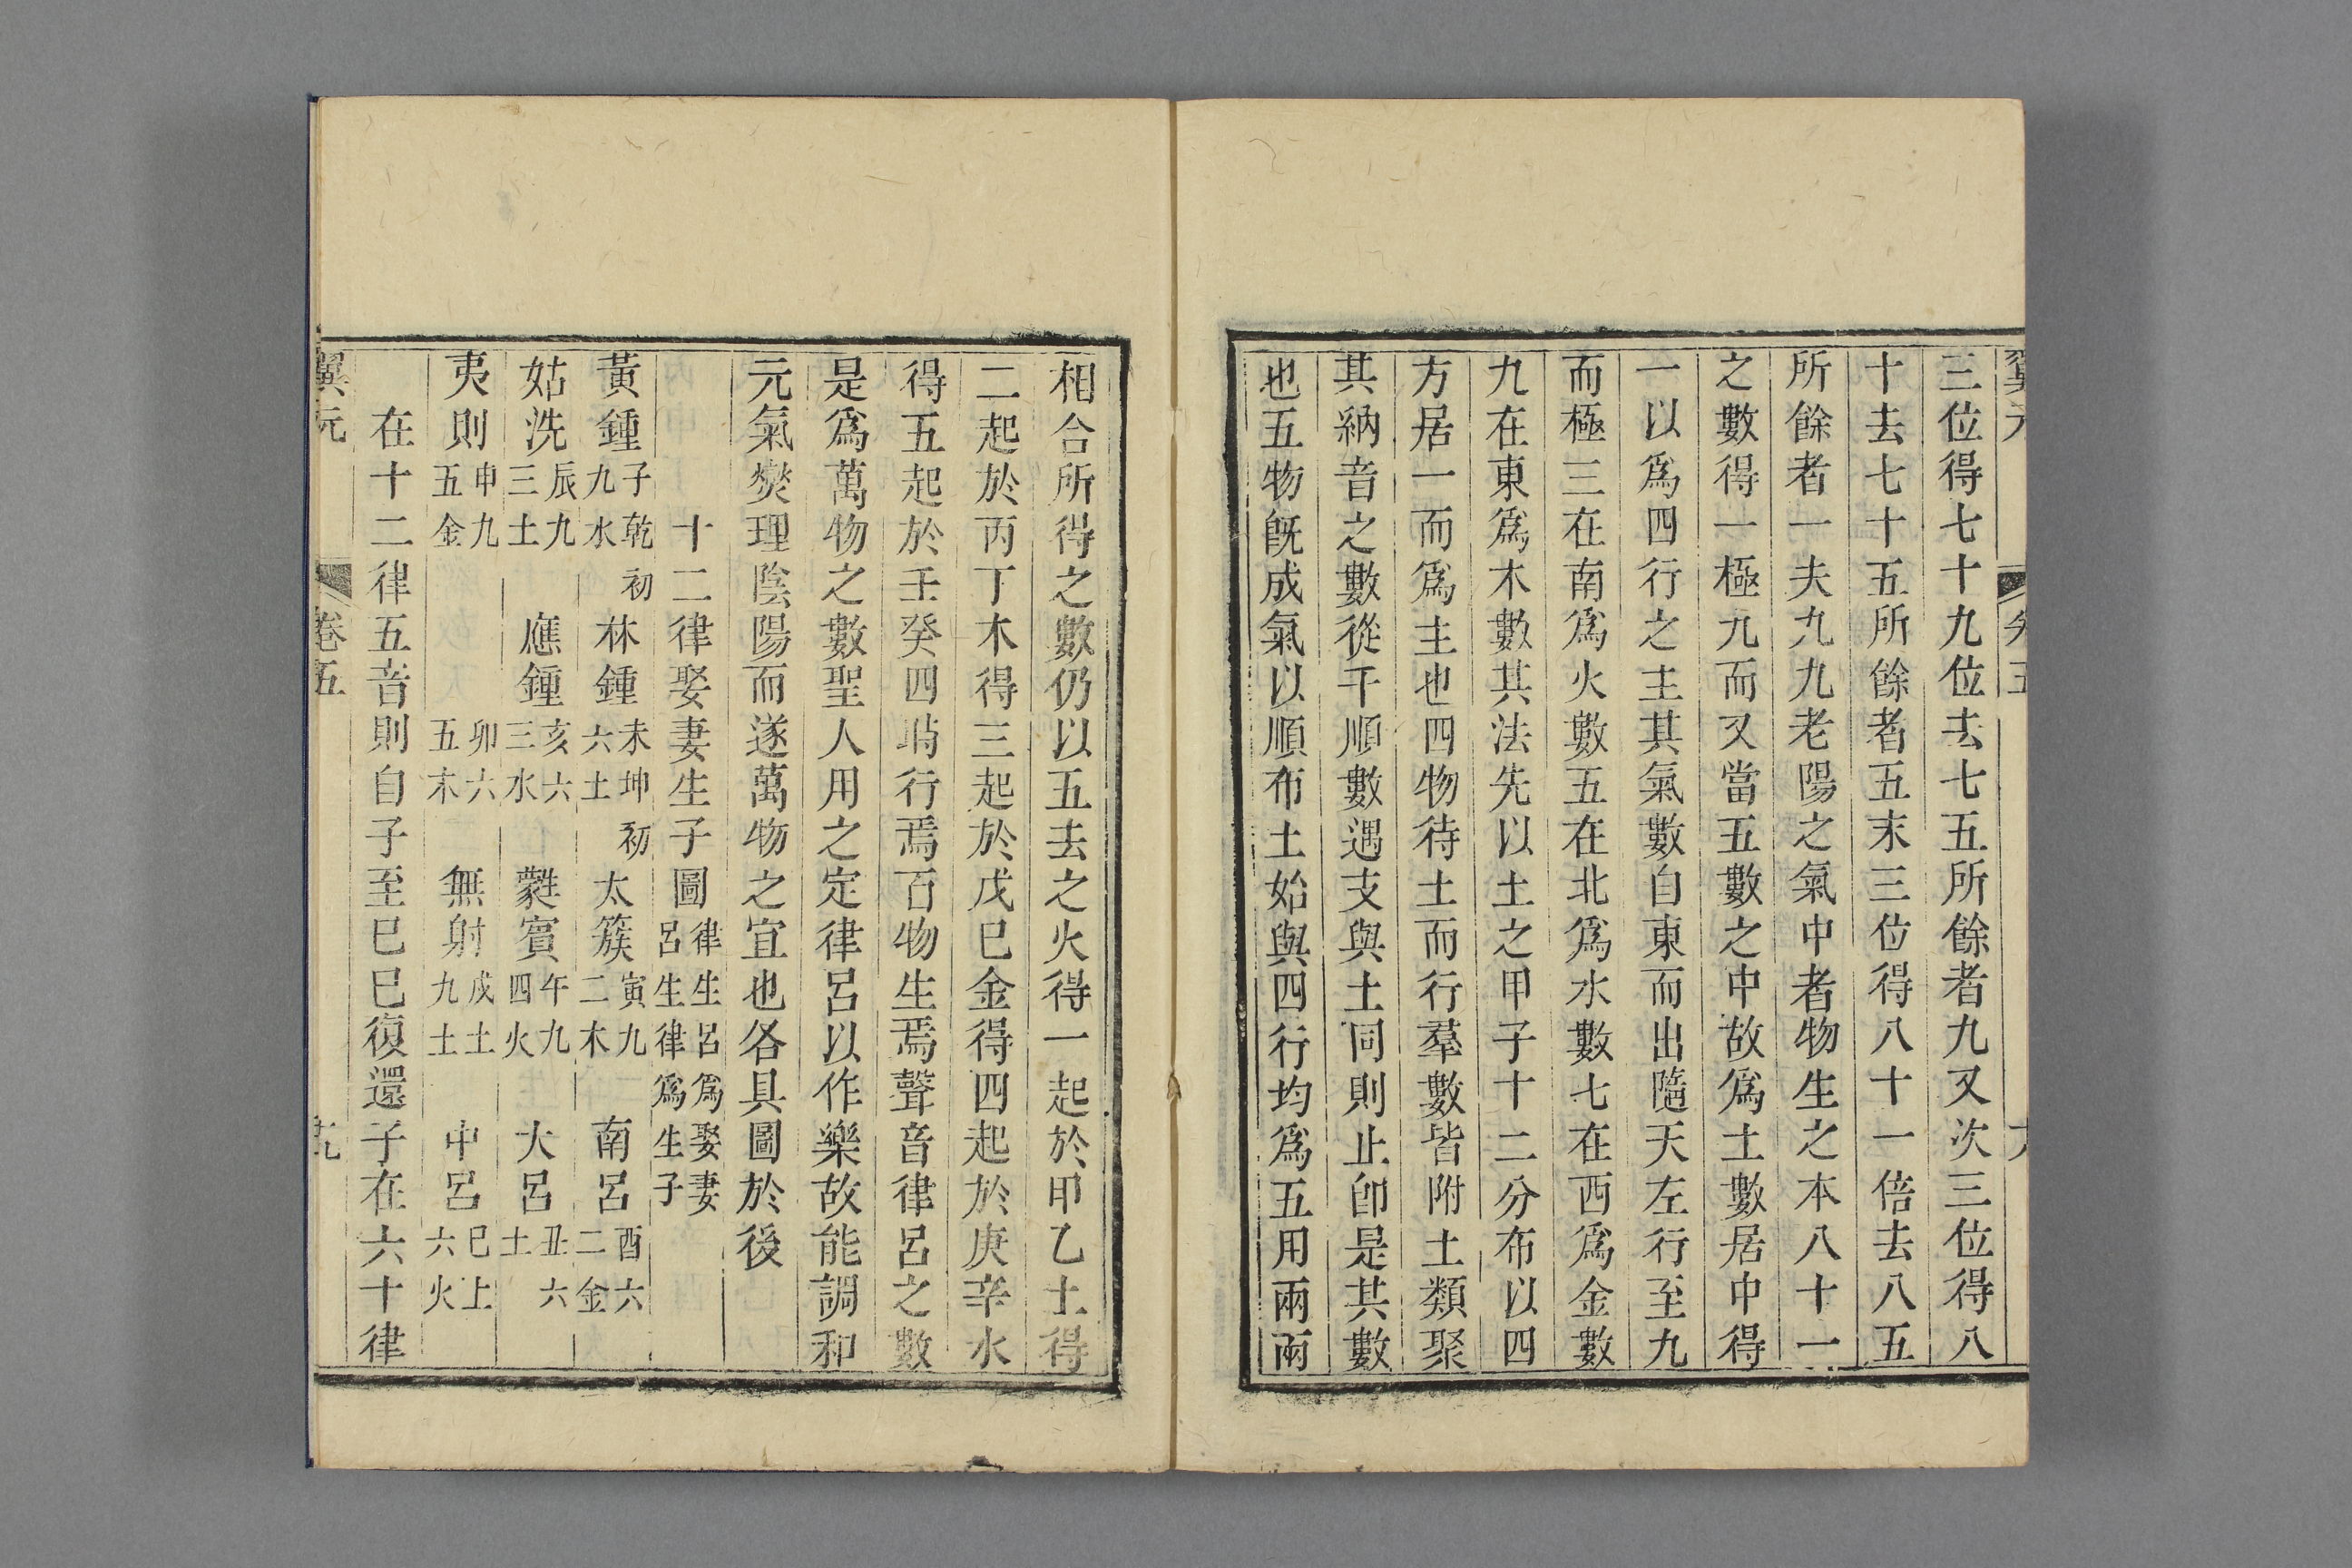 三位得七十九位去七五所餘者九又次三位得八
十去七十五所餘者五末三位得八十一倍去八五
所餘者一夫九九老陽之氣中者物生之本八十一
之數得一極九而又當五數之中故爲土數居中得
一以爲四行之主其氣數自東而出隨天左行至九
而極三在南爲火數五在北爲水數七在西爲金數
九在東爲木數其法先以土之甲子十二分布以四
方居一而爲主也四物待土而行羣數皆附土類聚
其納音之數從干順數遇支與土同則止卽是其數
也五物旣成氣以順布土始與四行均爲五用兩兩
相合所得之數仍以五去之火得一起於甲乙土得
二起於丙丁木得三起於戊巳金得四起於庚辛水
得五起於壬癸四時行焉百物生焉聲音律呂之數
是爲萬物之數聖人用之定律呂以作樂故能調和
元氣爕理陰陽而遂萬物之宜也各具圖於後
十二律娶妻生子圖律生呂爲娶妻呂生律爲生子
黃鍾子乾初九水 林鍾未坤初六土 太簇寅九二木 南呂酉六二金
姑洗辰九三土 應鍾亥六三水 蕤賓午九四火 大呂丑六土
夷則申九五金 卯六五木 無射戌土九土 中呂巳上六火
在十二律五音則自子至巳巳復還子在六十律
翼元 卷五 九